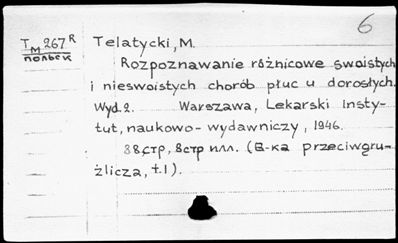 6
Т м 267 R
польск
Telatycki, M.
Rozpoznawanie różnicowe swoistych
i nieswoistych chorób płuc u dorosłych.
Wyd. 2. Warszawa, Lekarski Insty-
tut, naukowo-wydawniczy, 1946.
38 стр, 8 стр илл. (B-ka przeciwgru-
źlicza, t.1).